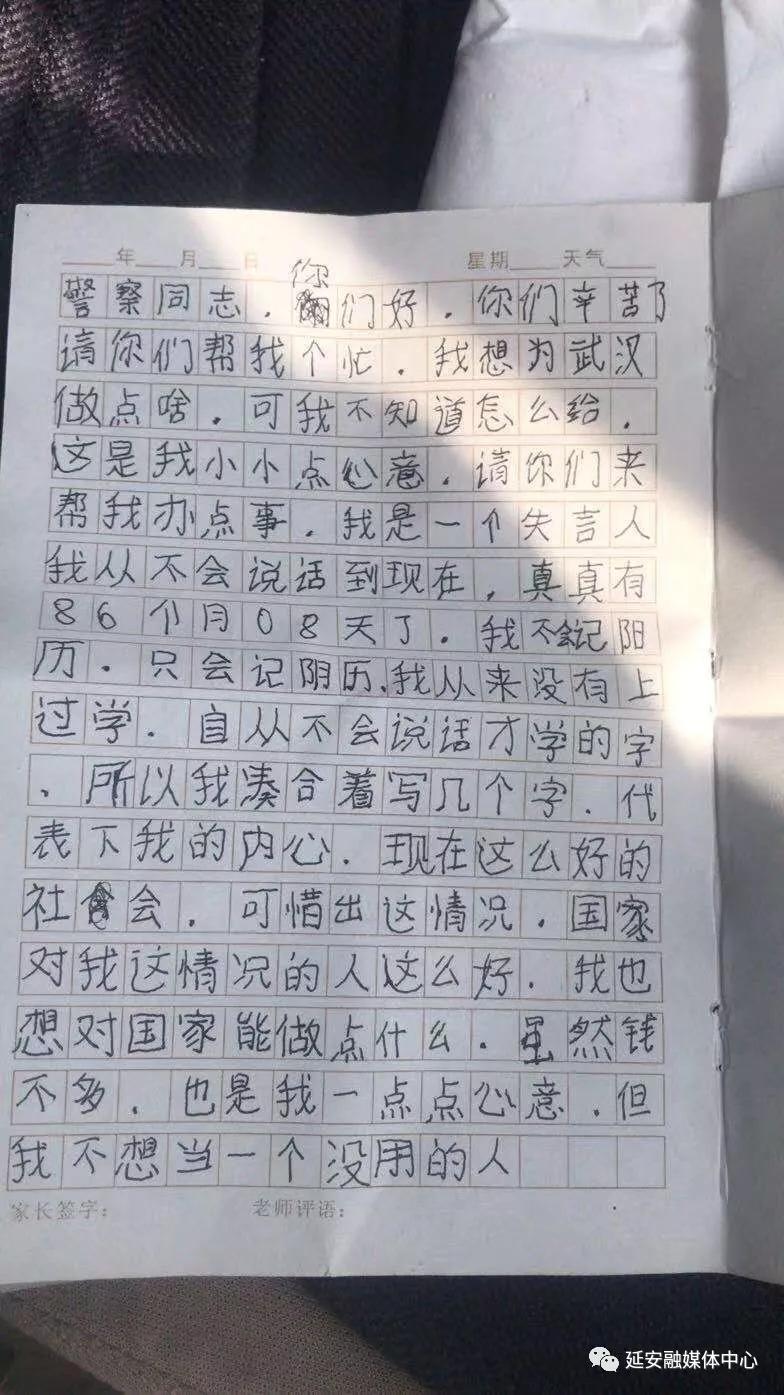 年 月 日 星期 天气
警察同志．你们好．你们辛苦了
请你们帮我个忙．我想为武汉
做点啥．可我不知道怎么给．
这是我小小点心意．请你们来
帮我办点事．我是一个失言人
我从不会说话到现在，真真有
86个月08天了．我不会记阳
历．只会记阴历、我从来没有上
过学．自从不会说话才学的字
．所以我凑合着写几个字．代
表下我的内心．现在这么好的
社会．可惜出这情况．国家
对我这情况的人这么好．我也
想对国家能做点什么．虽然钱
不多．也是我一点点心意．但
我不想当一个没用的人
家长签字： 老师评语：
延安融媒体中心